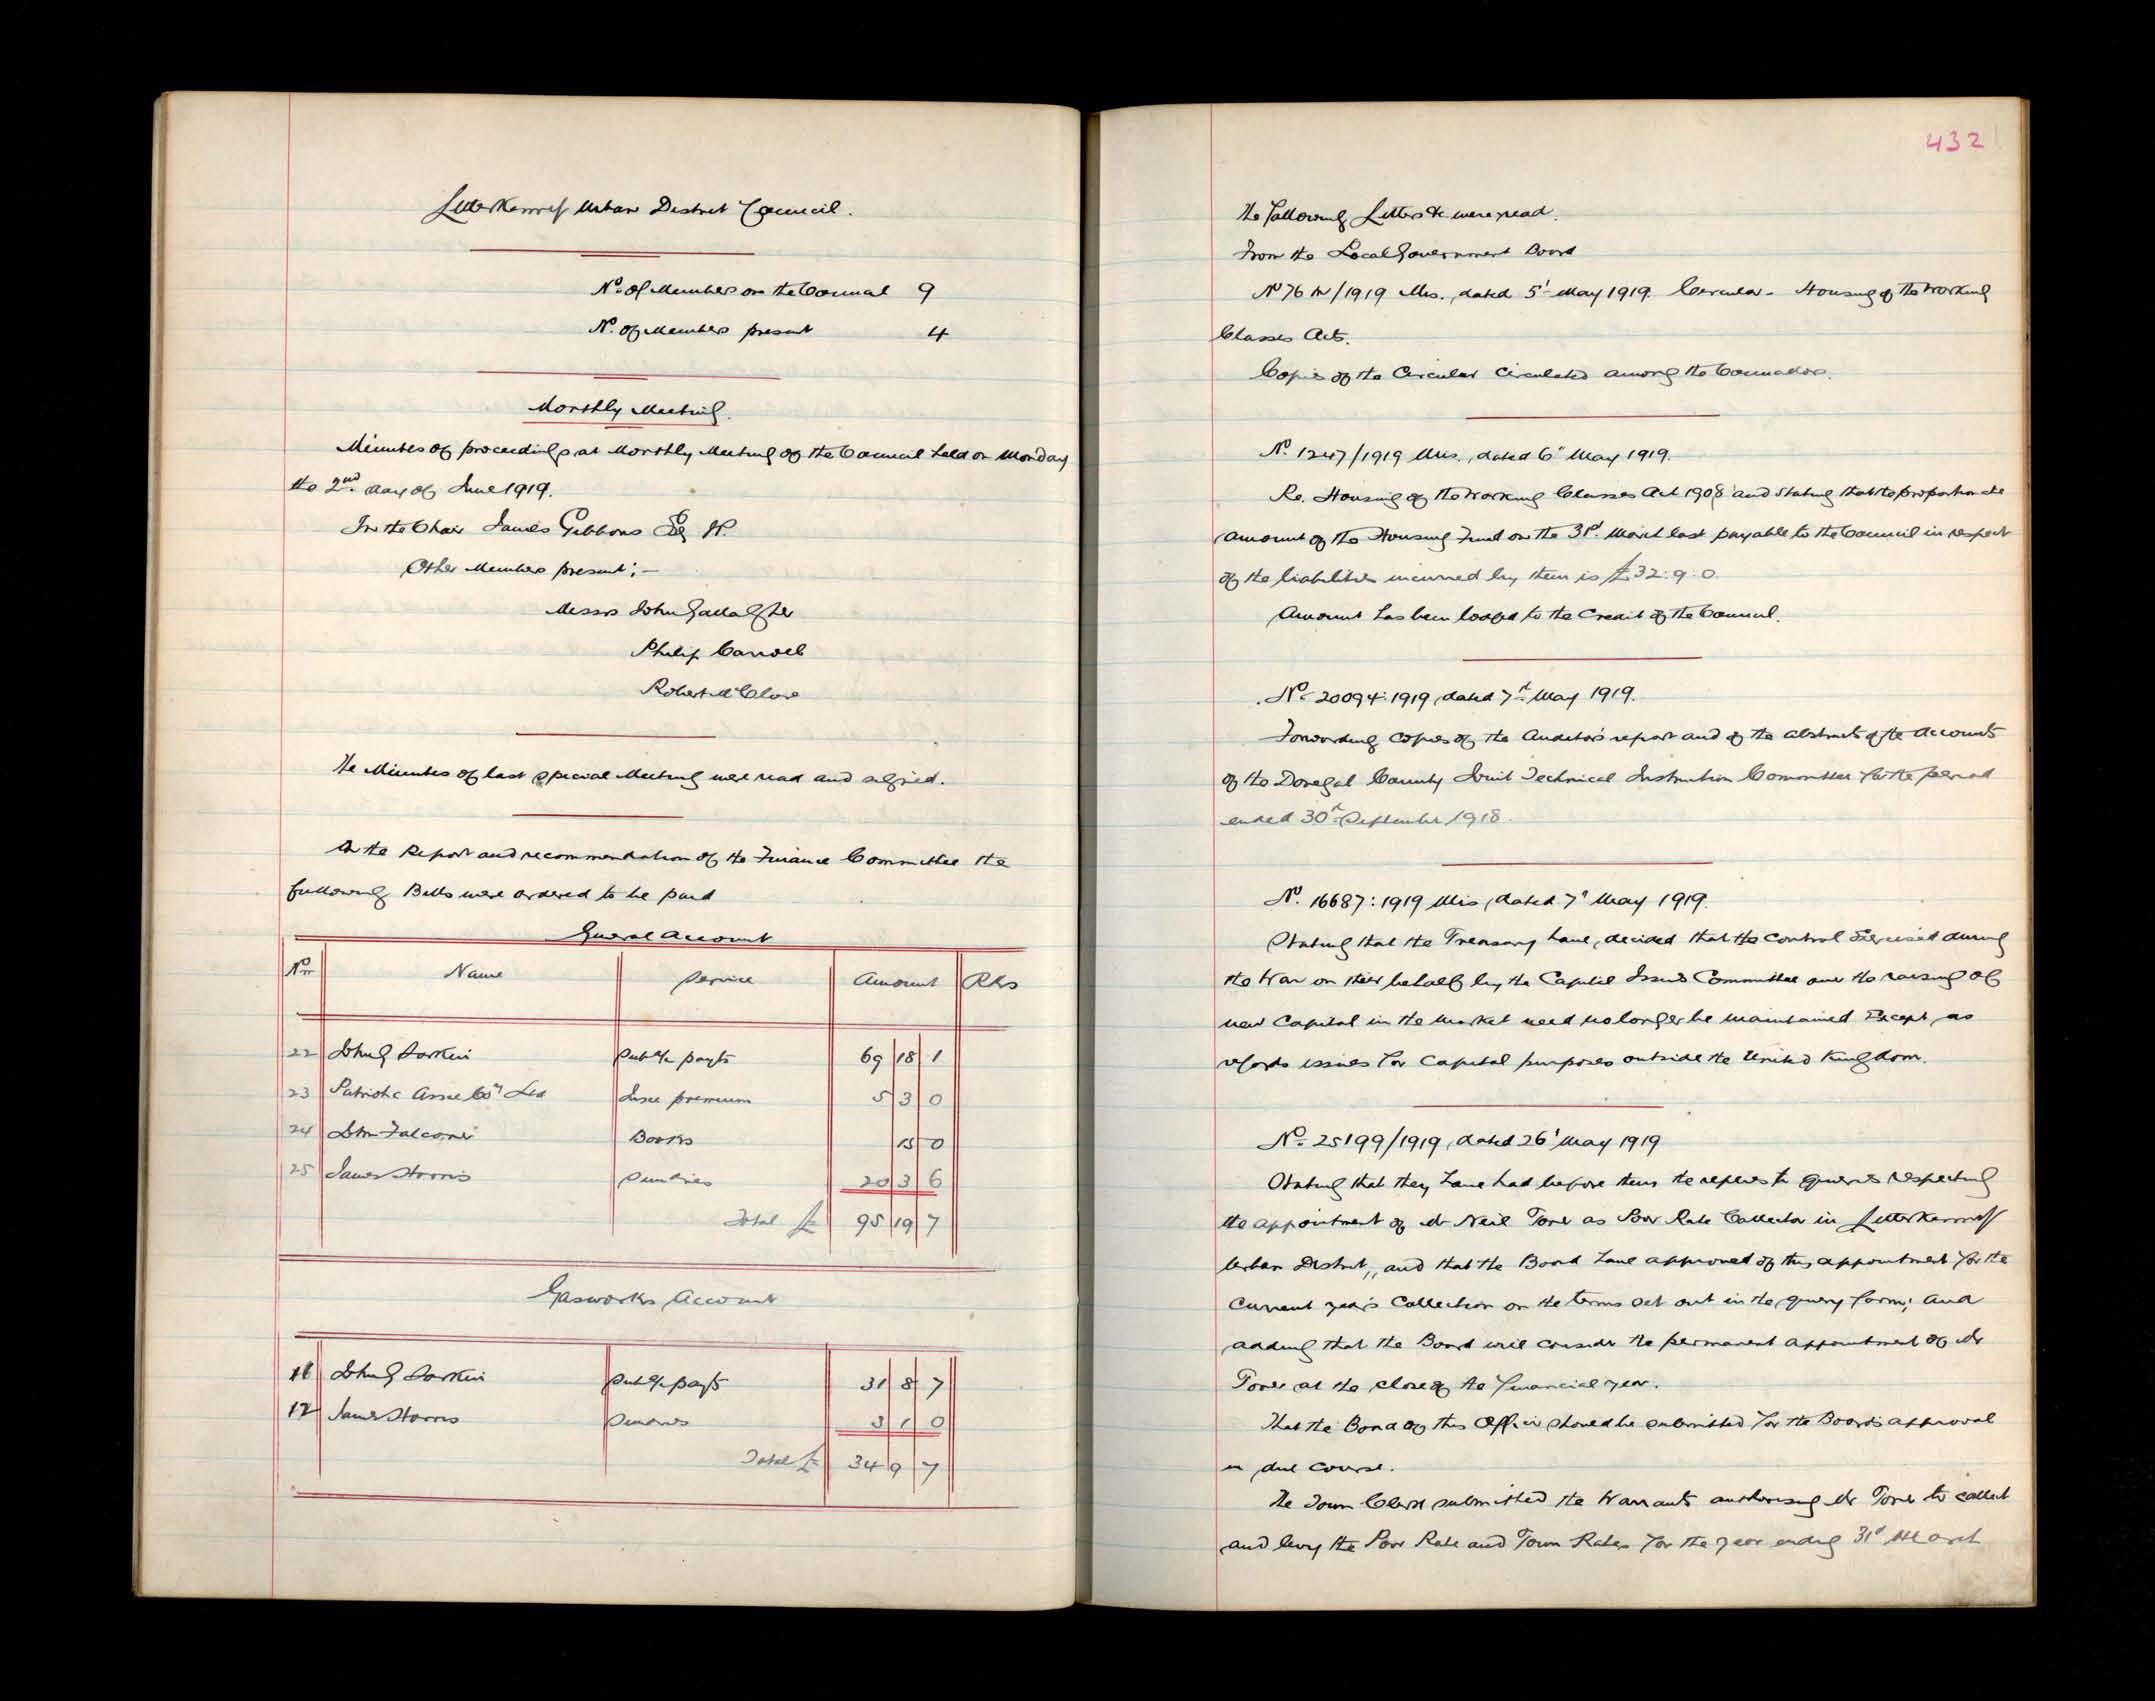 Letterkenny Urban District Council.
No. of Members on the Council 9
No. of Members present 4
Monthly Meeting.
Minutes of proceedings at Monthly Meeting of the Council held on Monday
the 2nd day of June 1919.
In the Chair James Gibbons Esq JP.
Other Members present :—
Messrs John Gallagher
Philip Carroll
Robert McClure
The Minutes of last special Meeting were read and signed.
On the Report and recommendation of the Finance Committee the
following Bills were ordered to be paid
General Account
No. Name Service Amount Rks
22 John G Larkin Sub a/c payts 69 18 1
23 Patriotic Assce Coy Ltd Insce premium 5 3 0
24 Jn Falconer Books 15 0
25 James Storris Sundries 20 3 6
Total £ 95 19 7
Gasworks Account
16 John G Larkin Sub a/c payts 31 8 7
17 James Storris Sundries 3 1 0
Total £ 34 9 7
432
The following Letters &c were read.
From the Local Government Board
No 76 M/1919 Mis., dated 5' May 1919. Circular - Housing of the Working
Classes Acts.
Copies of the Circular circulated among the Councillors.
No. 1247/1919 Mis., dated 6' May 1919.
Re. Housing of the Working Classes Act 1908 and stating that the proportionate
amount of the Housing Fund on the 31st. March last payable to the Council in respect
of the liabilities incurred by them is £32:9:0.
Amount has been lodged to the Credit of the Council.
No. 20094:1919, dated 7th May 1919.
Forwarding copies of the Auditor's report and of the abstracts of the accounts
of the Donegal County Joint Technical Instruction Committee for the period
ended 30th September 1918.
No. 16687:1919 Mis, dated 7' May 1919.
Stating that the Treasury have, decided that the control Exercised during
the War on their behalf by the Capital Issues Committee over the raising of
new Capital in the Market need no longer be maintained Except as
regards issues for Capital purposes outside the United Kingdom.
No. 25199/1919, dated 26' May 1919
Stating that they have had before them the replies to queries respecting
the appointment of Mr Neil Toner as Poor Rate Collector in Letterkenny
Urban District, and that the Board have approved of this appointment for the
Current year's Collection on the terms set out in the query form; and
adding that the Board will consider the permanent appointment of Mr
Toner at the close of the financial year.
That the Bond of this Officer should be submitted for the Board's approval
in due course.
The Town Clerk submitted the Warrants authorising Mr Toner to collect
and levy the Poor Rate and Town Rates for the year ending 31st March